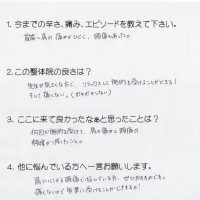 1. 今までの辛さ、痛み、エピソードを教えて下さい。
首肩〜肩の痛みがひどく、頭痛もあった。
2. この整体院の良さは？
先生が気さくな方で、リラックスして施術を受けることができる！
そして痛くない。(ボキボキしない)
3. ここに来て良かったなぁと思ったことは？
何回か施術を受けて、肩の痛みと頭痛の
頻度が減ったこと。
4. 他に悩んでいる方へ一言お願いします。
肩こりによる頭痛で悩んでいる方、ぜひおすすめです。
痛くないので気楽に受けることができますよ！